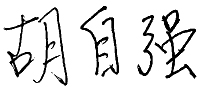 胡自强